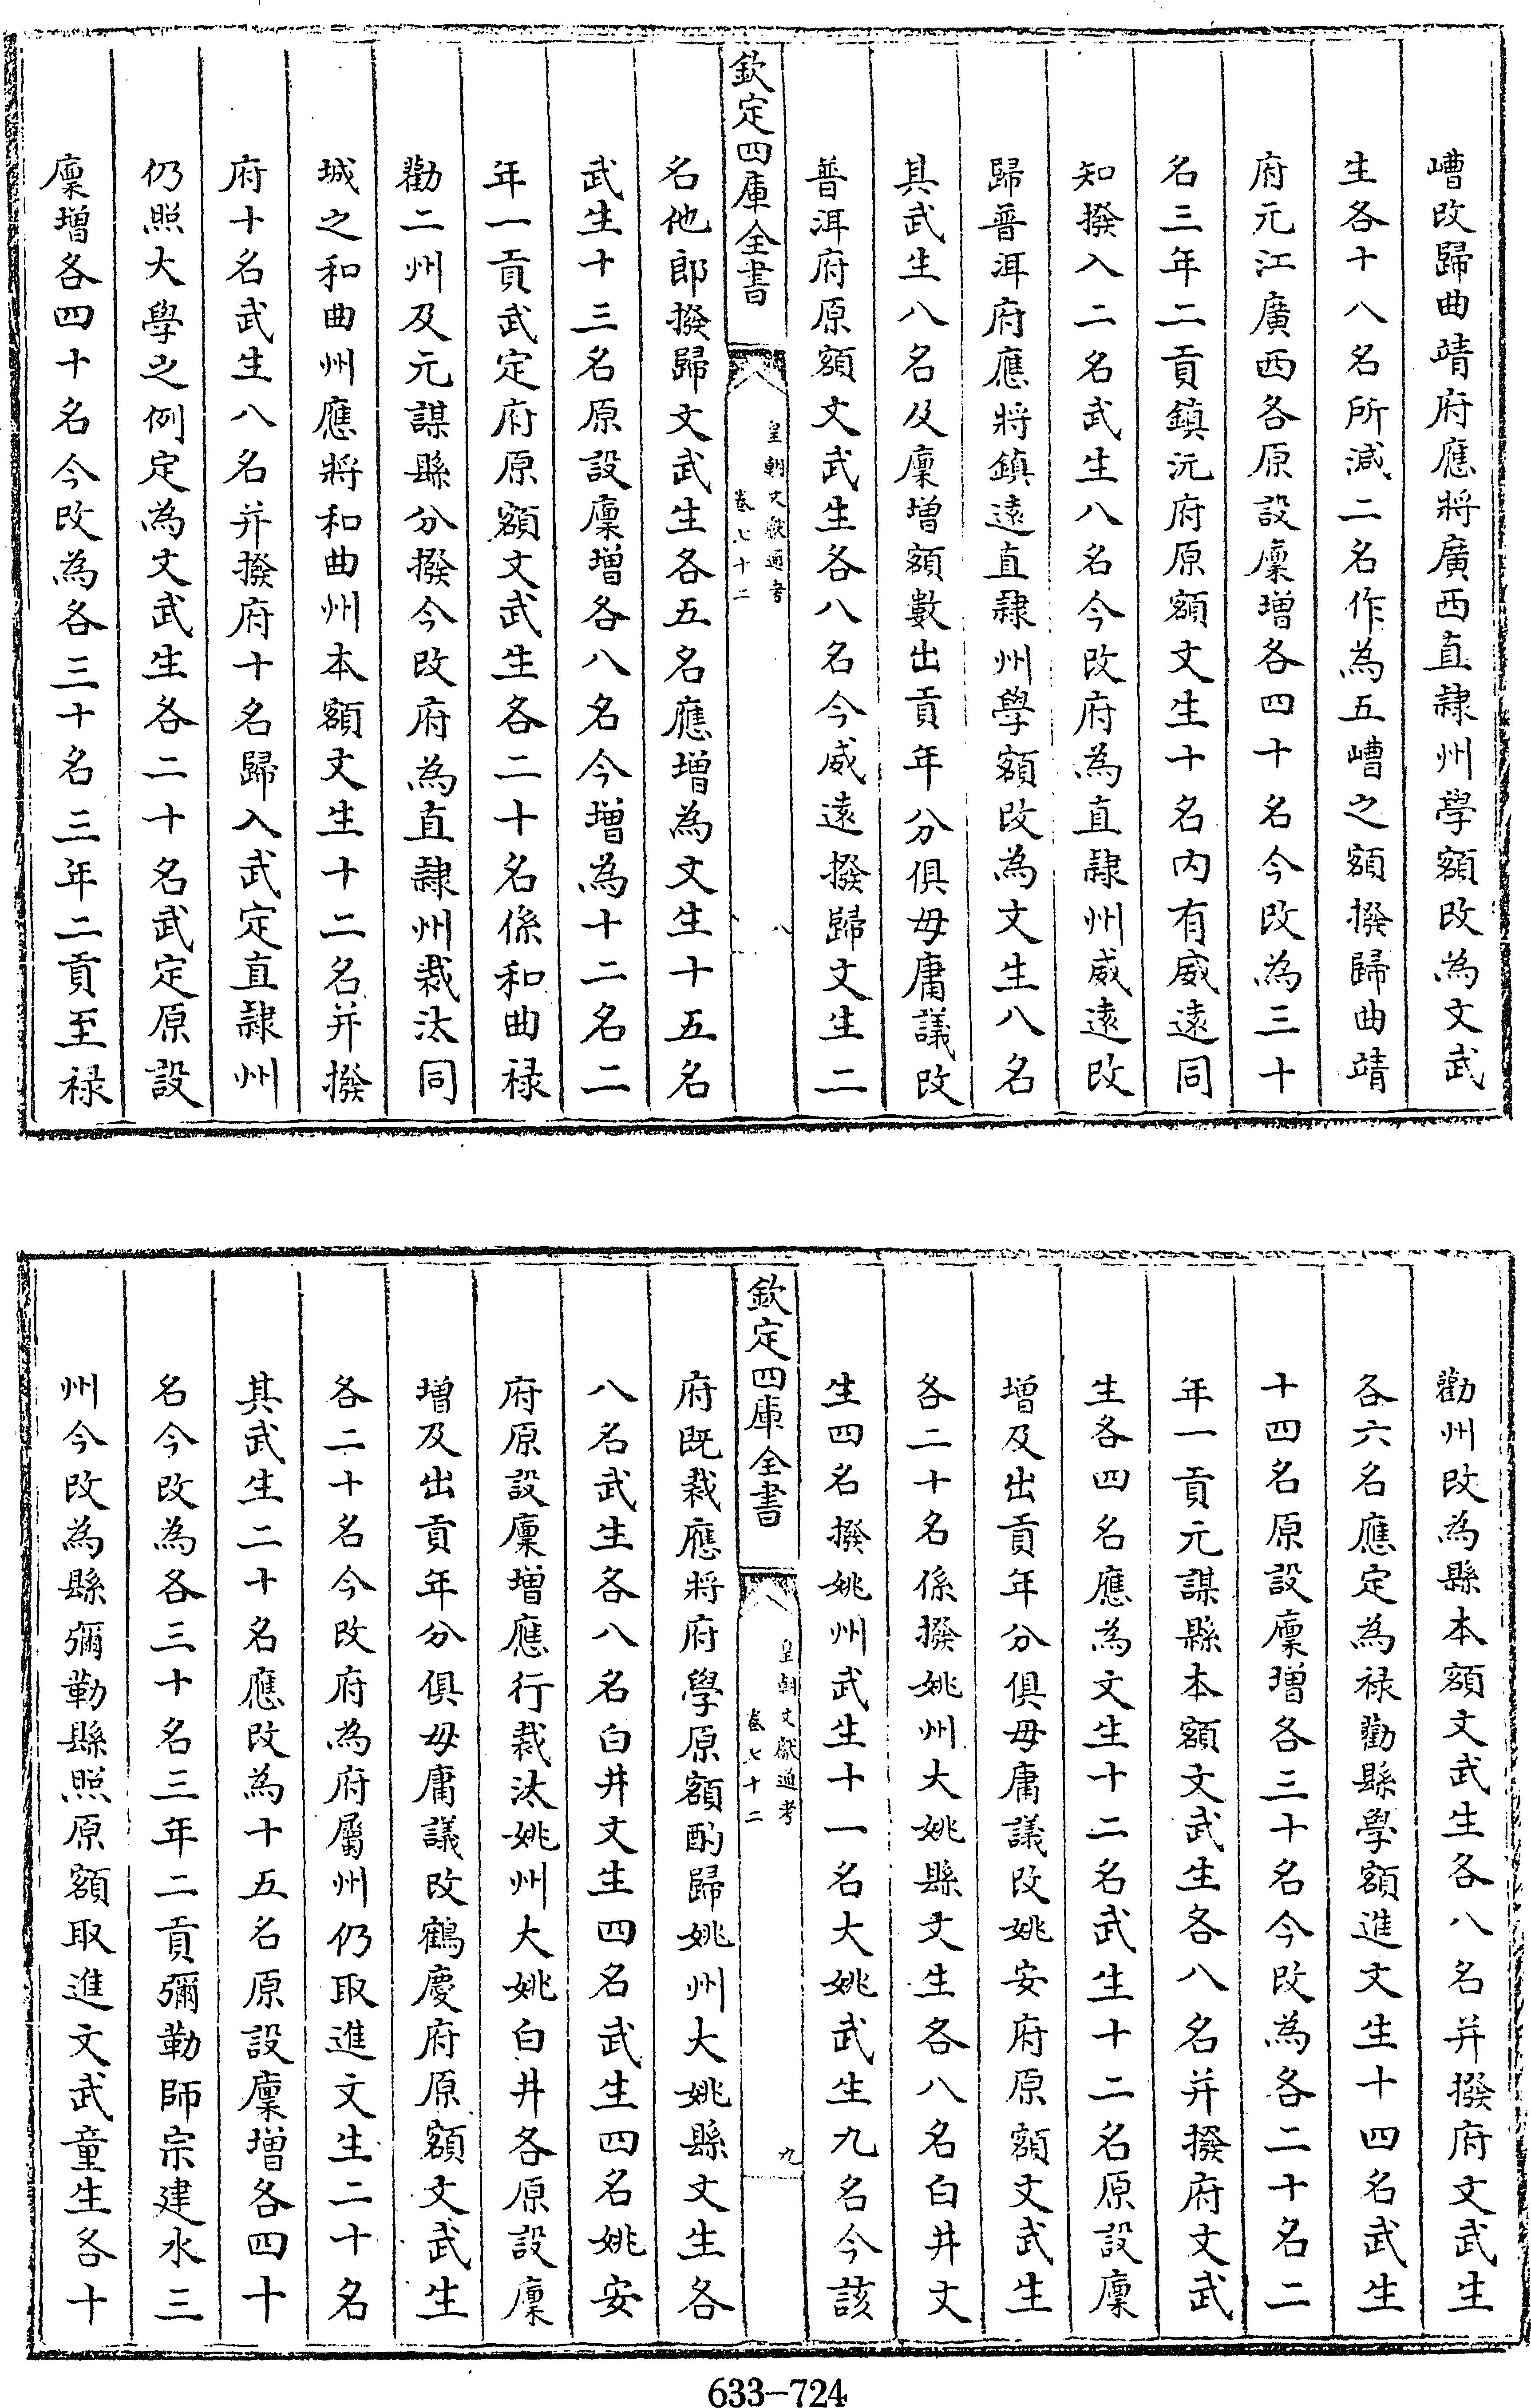 嶆改歸曲靖府應將廣西直隷州學額改為文武
生各十八名所減二名作為五嶆之額撥歸曲靖
府元江廣西各原設廩增各四十名今改為三十
名三年二貢鎮沅府原額文生十名內有威遠同
知撥入二名武生八名今改府為直隷州威遠改
歸普洱府應將鎮遠直隷州學額改為文生八名
其武生八名及廩增額數出貢年分俱毋庸議改
普洱府原額文武生各八名今威遠撥歸文生二
欽定四庫全書
皇朝文獻通考
卷七十二
八
名他郎撥歸文武生各五名應增為文生十五名
武生十三名原設廩增各八名今增為十二名二
年一貢武定府原額文武生各二十名係和曲禄
勸二州及元謀縣分撥今改府為直隷州裁汰同
城之和曲州應將和曲州本額文生十二名并撥
府十名武生八名并撥府十名歸入武定直隷州
仍照大學之例定為文武生各二十名武定原設
廩增各四十名今改為各三十名三年二貢至禄
勸州改為縣本額文武生各八名并撥府文武生
各六名應定為禄勸縣學額進文生十四名武生
十四名原設廩增各三十名今改為各二十名二
年一貢元謀縣本額文武生各八名并撥府文武
生各四名應為文生十二名武生十二名原設廩
增及出貢年分俱毋庸議改姚安府原額文武生
各二十名係撥姚州大姚縣文生各八名白井文
生四名撥姚州武生十一名大姚武生九名今該
欽定四庫全書
皇朝文獻通考
卷七十二
九
府既裁應將府學原額酌歸姚州大姚縣文生各
八名武生各八名白井文生四名武生四名姚安
府原設廩增應行裁汰姚州大姚白井各原設廩
增及出貢年分俱毋庸議改鶴慶府原額文武生
各二十名今改府為府屬州仍取進文生二十名
其武生二十名應改為十五名原設廩增各四十
名今改為各三十名三年二貢彌勒師宗建水三
州今改為縣彌勒縣照原額取進文武童生各十
633-724